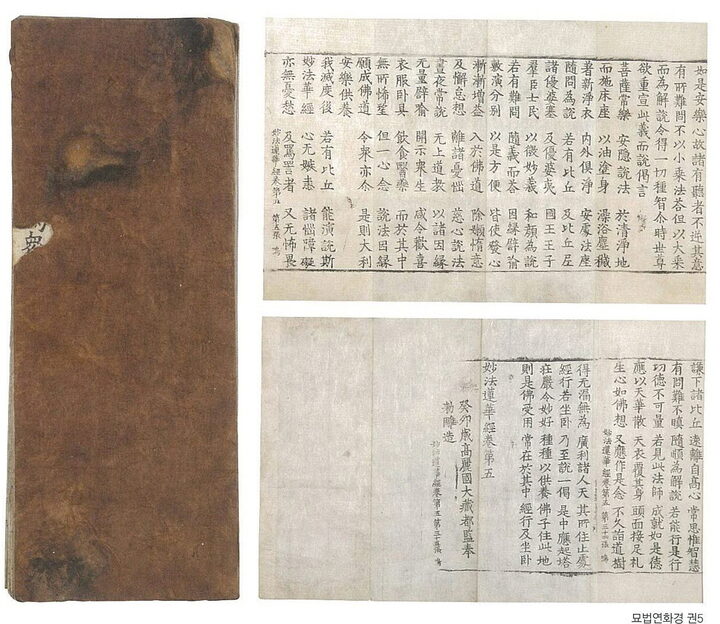 如是安樂心故諸有聽者不逆其意
有所難問不以小乘法荅但以大乘
而為解說令得一切種智尒時世尊
欲重宣此義而說偈言
菩薩常樂 安隱說法 於清淨地
而施床座 以油塗身 澡浴塵穢
著新淨衣 內外俱淨 安處法座
隨問為說 若有比丘 及比丘尼
諸優婆塞 及優婆夷 國王王子
羣臣士民 以微妙義 和顏為說
若有難問 隨義而荅 因緣譬喻
敷演分別 以是方便 皆使發心
漸漸增益 入於佛道 除嬾惰意
及懈怠想 離諸憂惱 慈心說法
晝夜常說 無上道教 以諸因緣
无量譬喻 開示衆生 咸令歡喜
衣服臥具 飲食醫藥 而於其中
無所悕望 但一心念 說法因緣
願成佛道 令衆亦尒 是則大利
安樂供養
我滅度後 若有比丘 能演說斯
妙法華經 心無嫉恚 諸惱障礙
亦無憂愁 及罵詈者 又無怖畏
妙法蓮華經卷第五 第五張 鳴
謙下諸比丘 遠離自高心 常思惟智慧
有問難不瞋 隨順為解說 若能行是行
功德不可量 若見此法師 成就如是德
應以天華散 天衣覆其身 頭面接足礼
生心如佛想 又應作是念 不久詣道樹
妙法蓮華經卷第五
得無漏無為 廣利諸人天 其所住止處
經行若坐臥 乃至說一偈 是中應起塔
莊嚴令妙好 種種以供養 佛子住此地
則是佛受用 常在於其中 經行及坐臥
妙法蓮華經卷第五
癸卯歲高麗國大藏都監奉
勅雕造
妙法蓮華經卷第五
묘법연화경 권5